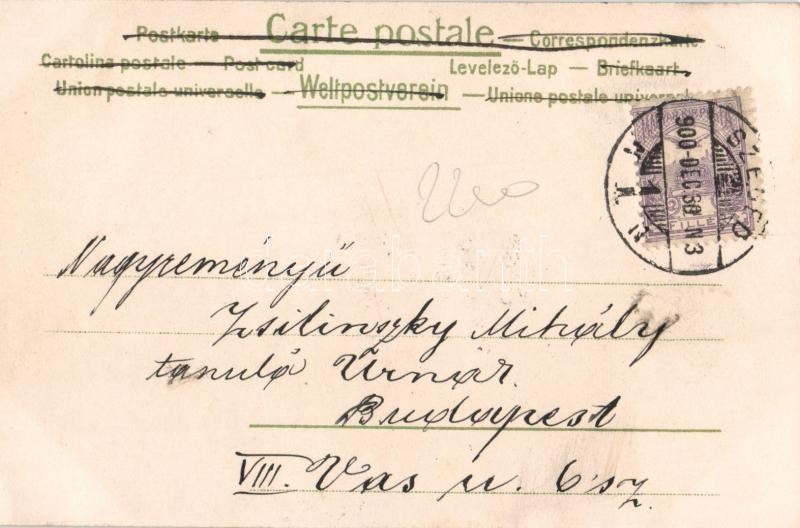 Carte postale
Postkarte — Correspondenzkarte
Cartolina postale — Post card
Levelező-Lap — Briefkaart
Union postale universelle — Weltpostverein — Unione postale univers
SZEGED
900-DEC 30 N3
FILLÉR
darabanth
Nagyreményű
Zsilinszky Mihály
tanuló Úrnak
Budapest
VIII. Vas u. 6 sz.